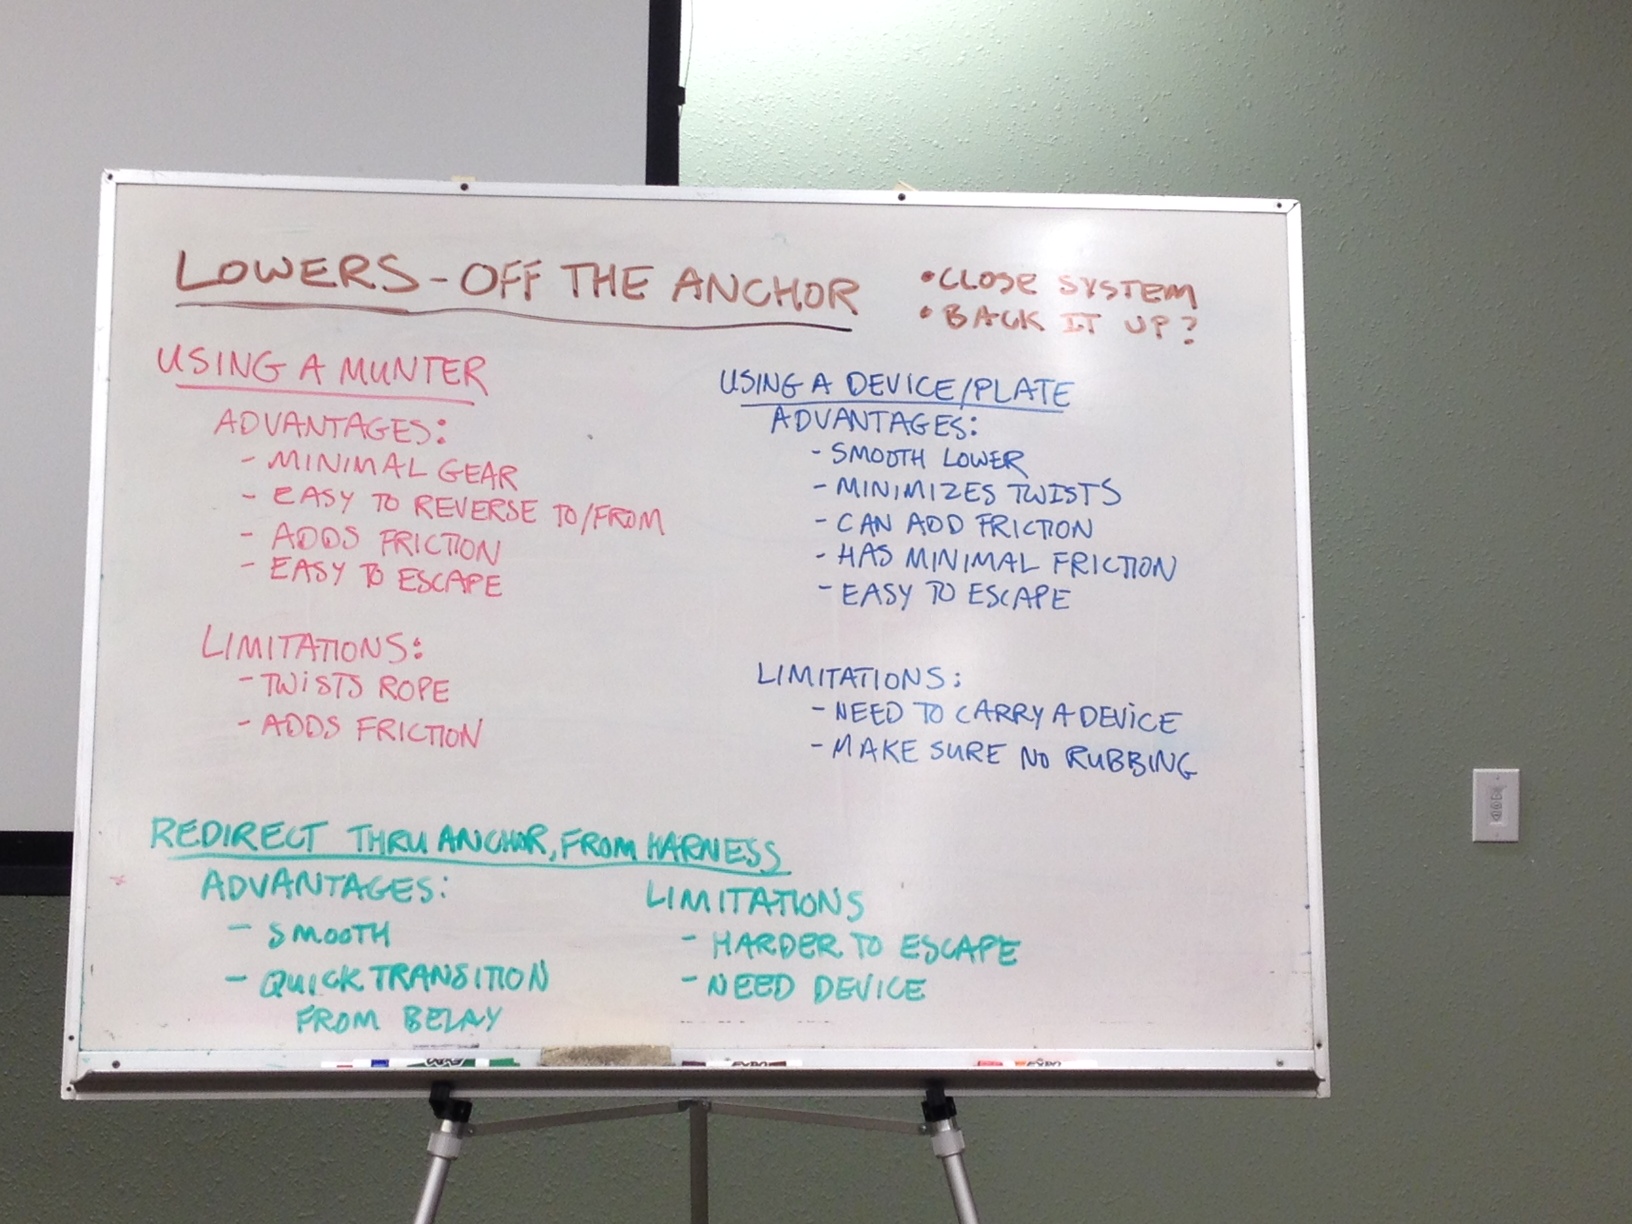 LOWERS - OFF THE ANCHOR
• CLOSE SYSTEM
• BACK IT UP?
USING A MUNTER
ADVANTAGES:
- MINIMAL GEAR
- EASY TO REVERSE TO/FROM
- ADDS FRICTION
- EASY TO ESCAPE
LIMITATIONS:
- TWISTS ROPE
- ADDS FRICTION
USING A DEVICE/PLATE
ADVANTAGES:
- SMOOTH LOWER
- MINIMIZES TWISTS
- CAN ADD FRICTION
- HAS MINIMAL FRICTION
- EASY TO ESCAPE
LIMITATIONS:
- NEED TO CARRY A DEVICE
- MAKE SURE NO RUBBING
REDIRECT THRU ANCHOR, FROM HARNESS
ADVANTAGES:
- SMOOTH
- QUICK TRANSITION
FROM BELAY
LIMITATIONS
- HARDER TO ESCAPE
- NEED DEVICE